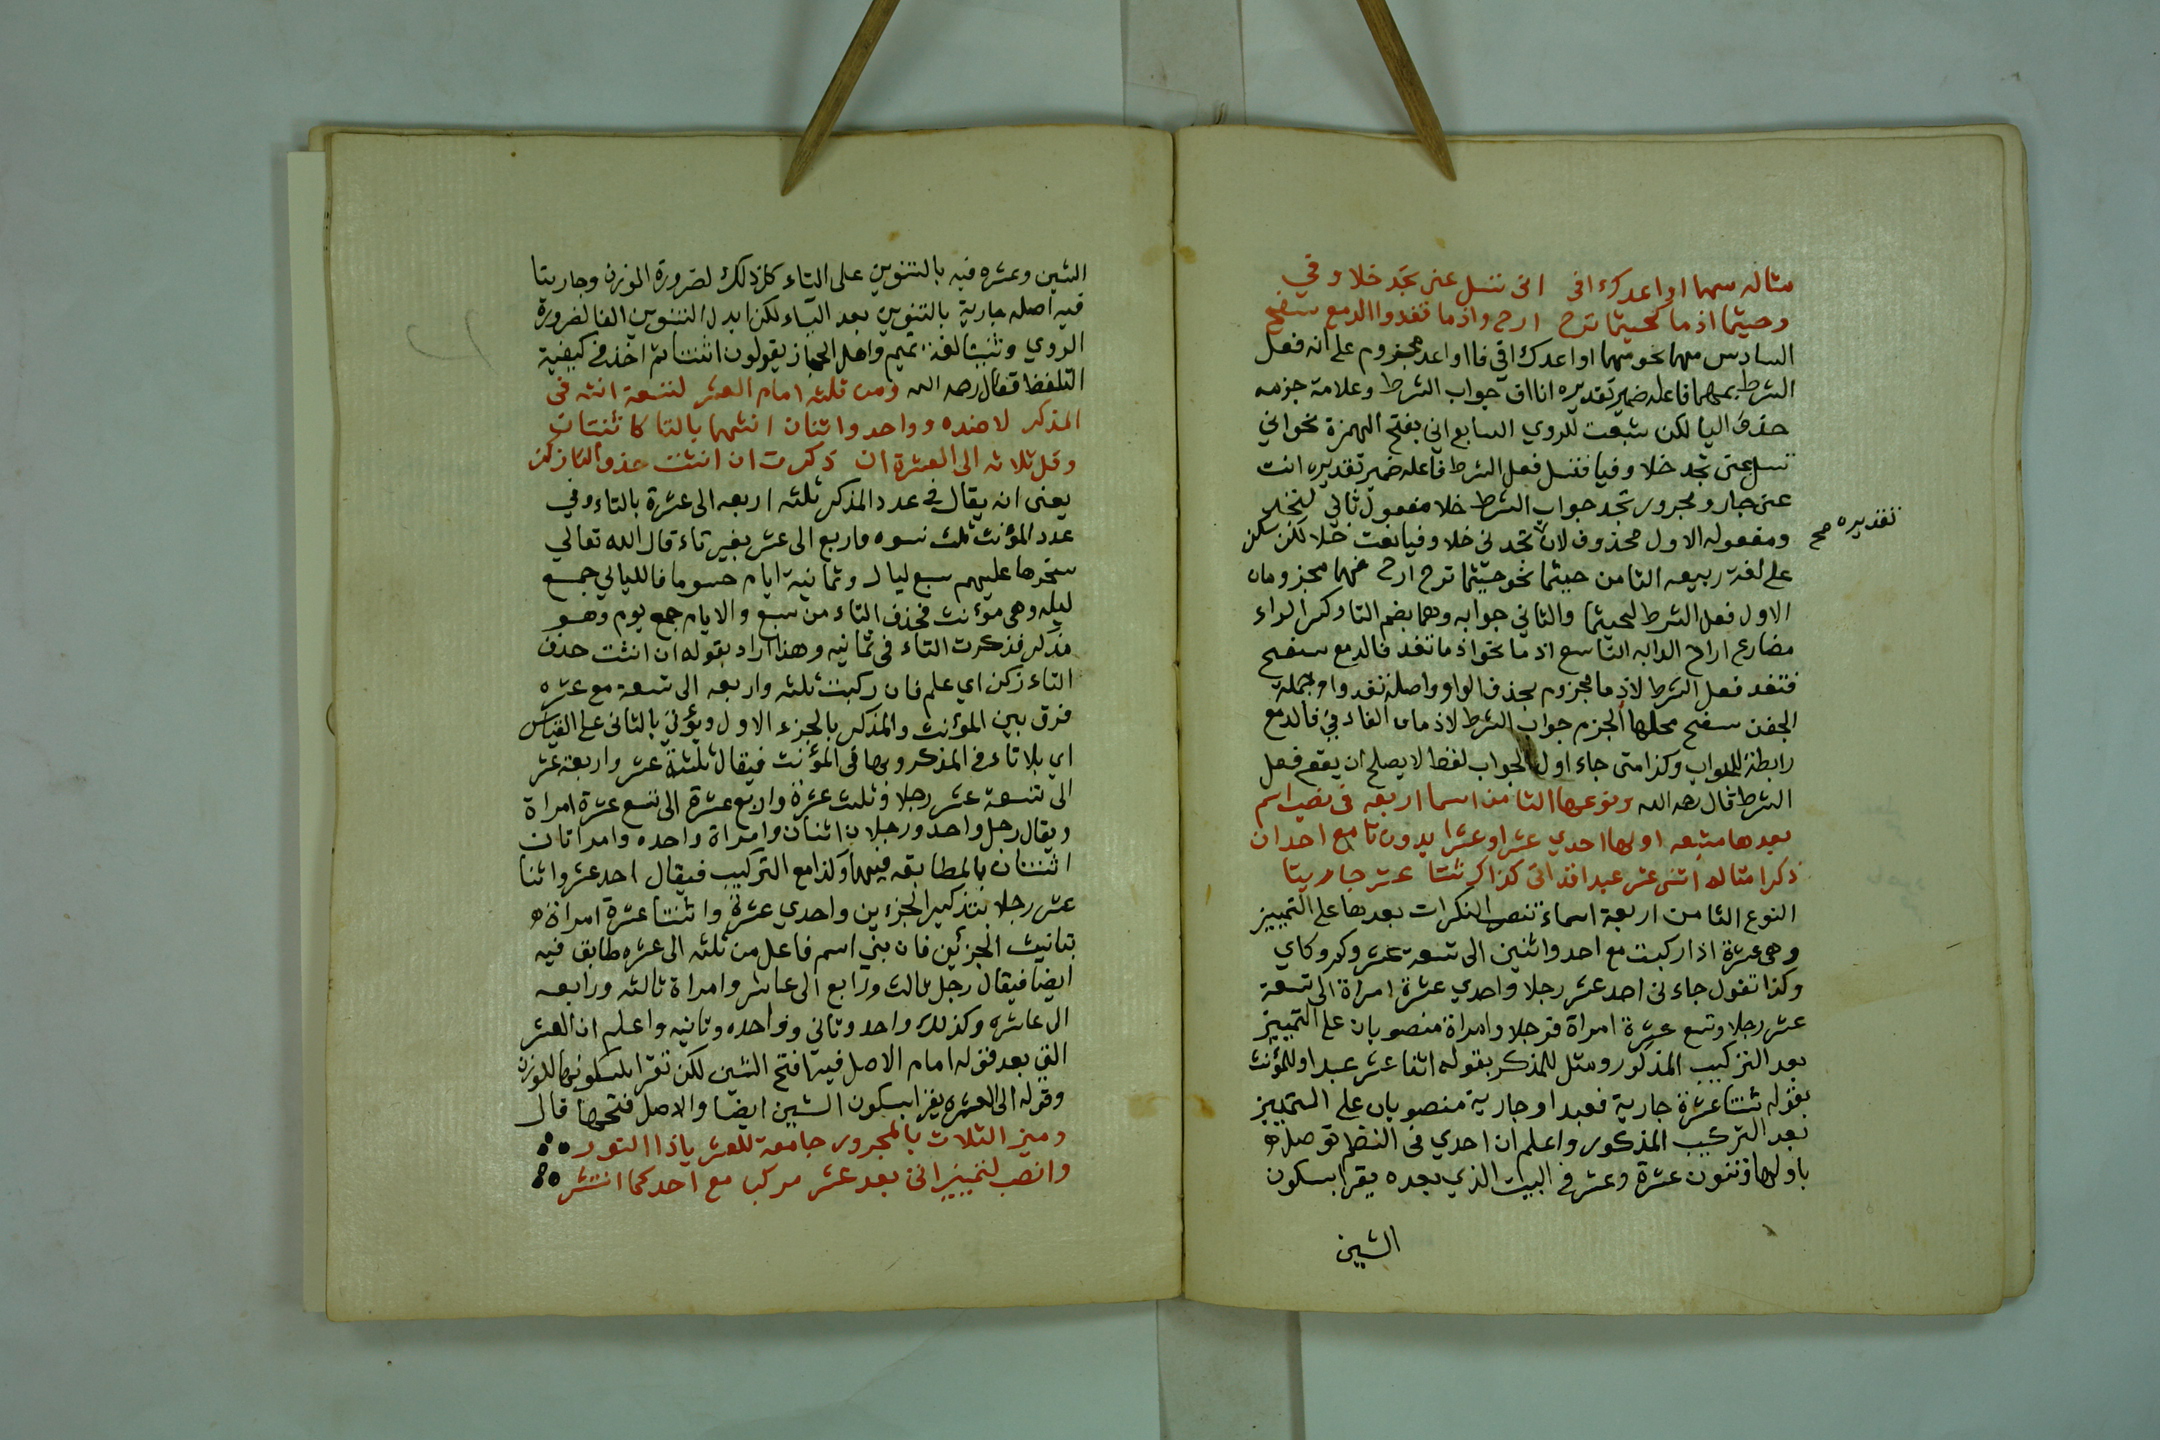 مثاله مهما اواعدك افي اني تسل عني تجد خلا وفي
وحيثما اذ ما كحيثما ترح ارح واذ ما تغد واالدمع سفح
السادس مهما نحو مهما اواعدك افي فااواعد مجزوم على انه فعل
الشرط بمهما فاعله ضمير تقديره انا اف جواب الشرط وعلامة جزمه
حذف اليا لكن شبعت للروي السابع اني بفتح الهمزة نحو اني
تسل عني تجد خلا وفيا فتسل فعل الشرط فاعله ضمير تقديره انت
عني جار ومجرور تجد جواب الشرط خلا مفعول ثاني لتجد
ومفعوله الاول محذوف لان تجدني خلا وفيا نعت خلا لكن سكن
تقديره صح
على لغة ربيعه الثامن حيثما نحو حيثما ترح ارح فهما مجزومان
الاول فعل الشرط لحيثما والثاني جوابه وهما بضم التا وكسر الراء
مضارع اراح الدابه التاسع اذ ما نحو اذ ما تغد فالدمع سفح
فتغد فعل الشرط لاذ ما مجزوم بحذف الواو واصله تغدوا وجملة
الجفن سفح محلها الجزم جواب الشرط لاذ ما الفاء في فالدمع
رابطة للجواب وكذا متى جاء اول الجواب لفظ لا يصلح ان يقع فعل
الشرط قال رحمه الله ونوعها الثامن اسما اربعه في نصب اسم
بعدها متبعه اولها احدي عشر او عشرا بدون تا مع احد ان
ذكرا مثاله اثني عشر عبدا قد اتي كذاك ثنتا عشر جاريتا
النوع الثامن اربعة اسماء تنصب النكرات بعدها على التمييز
وهي عشرة اذا ركبت مع احد واثنين الى تسعة عشر وكم وكاي
وكذا تقول جاءني احد عشر رجلا واحدي عشرة امراة الى تسعة
عشر رجلا وتسع عشرة امراة فرجلا وامراة منصوبان على التمييز
بعد التركيب المذكور ومثل للمذكر بقوله اثنا عشر عبدا وللمؤنث
بقوله ثنتا عشرة جارية فعبدا وجارية منصوبان على التمييز
بعد التركيب المذكور واعلم ان احدي في النظم توصل
باولها وتنون عشرة وعشر في البيت الذي بعده يقرا بسكون
الشين
الشين وعشره فيه بالتنوين على التاء كل ذلك لضرورة الوزن وجاريتا
فيه اصله جارية بالتنوين بعد التاء لكن ابدل التنوين الفا لضرورة
الروي وثنتا لغة تميم واهل الحجاز يقولون اثنتا ثم اخذ في كيفية
التلفظ فقال رحمه الله ومن ثلثه امام العشر لتسعة انثه في
المذكر لا ضده وواحد واثنان انثهما بالتا كاثنتان
وقل ثلاثه الى العشرة ان ذكرت ان انثت حذو التا زكن
يعني انه يقال في عدد المذكر ثلثه اربعه الى عشرة بالتاء وفي
عدد المؤنث ثلث نسوه واربع الى عشر بغير تاء قال الله تعالي
سخرها عليهم سبع ليال وثمانية ايام حسوما فالليالي جمع
ليله وهي مؤنث فحذف التاء من سبع والايام جمع يوم وهو
مذكر فذكرت التاء في ثمانيه وهذا اراد بقوله ان انثت حذف
التاء زكن اي علم فان ركبت ثلثه واربعه الى تسعة مع عشره
فرق بين المؤنث والمذكر بالجزء الاول ويؤتي بالثاني على القياس
اي بلا تاء في المذكر وبها في المؤنث فيقال ثلثة عشر واربعة عشر
الى تسعة عشر رجلا وثلث عشرة واربع عشرة الى تسع عشرة امراة
ويقال رجل واحد ورجلان اثنان وامراة واحده وامراتان
اثنتان بالمطابقه فيهما وكذا مع التركيب فيقال احد عشر واثنا
عشر رجلا بتذكير الجزءين واحدي عشرة واثنتا عشرة امراة
بتانيث الجزئين فان بني اسم فاعل من ثلثه الى عشره طابق فيه
ايضا فيقال رجل ثالث ورابع الى عاشر وامراة ثالثه ورابعه
الى عاشره وكذلك واحد وثاني وواحده وثانيه واعلم ان العشر
التي بعد قوله امام الاصل فيها فتح الشين لكن تقرا بسكونها للوزن
وقوله الى العشره يقرا بسكون الشين ايضا والاصل فتحها قال
وميز الثلاث بالمجرور جامعة للعشر ياذا النور
وانصب لتمييز اتي بعد عشر مركب مع احد كما انتشر